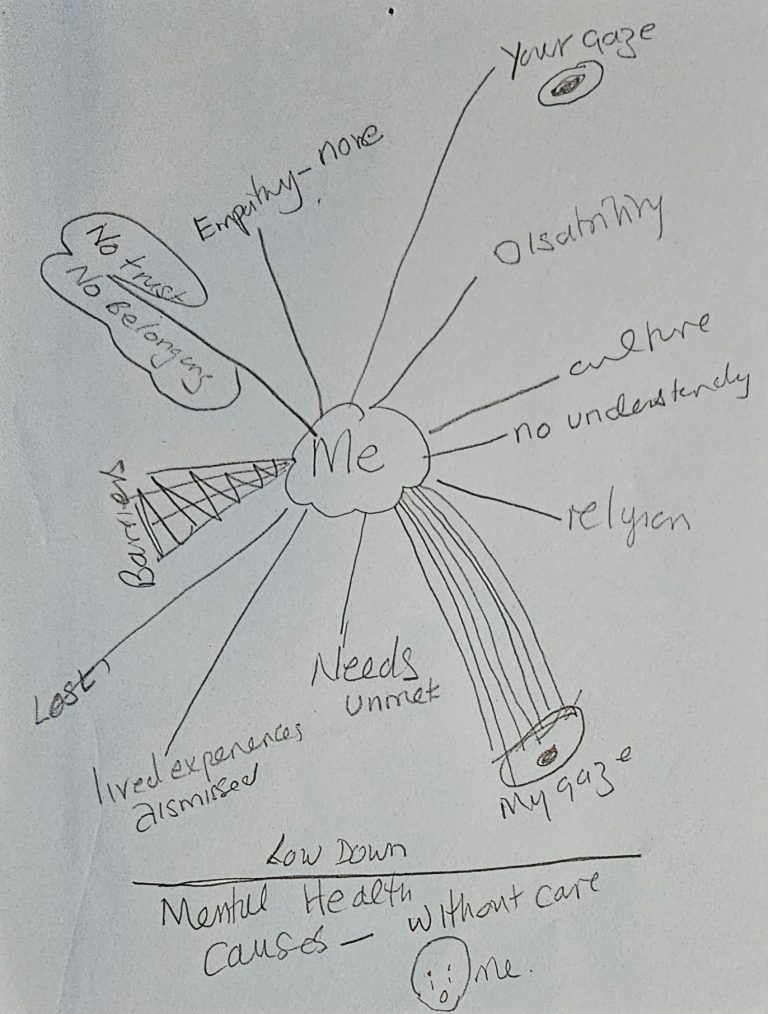 Your gaze
Empathy - none
Disability
No trust
No Belonging
culture
no understandy
Me
relgion
Barriers
Lost,
Needs
unmet
lived experiences
dismissed
My gaze
Low Down
Mental Health
causes - without care
me.